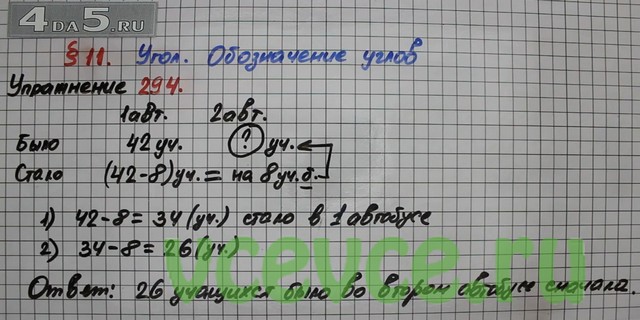 4DA5.RU
§ 11. Угол. Обозначение углов
Упражнение 294.
1авт. 2авт.
Было 42 уч. ? уч.
Стало (42-8)уч. = на 8 уч. б.
1) 42-8 = 34 (уч.) стало в 1 автобусе
2) 34-8 = 26 (уч.)
vcevce.ru
Ответ: 26 учащихся было во втором автобусе сначала.